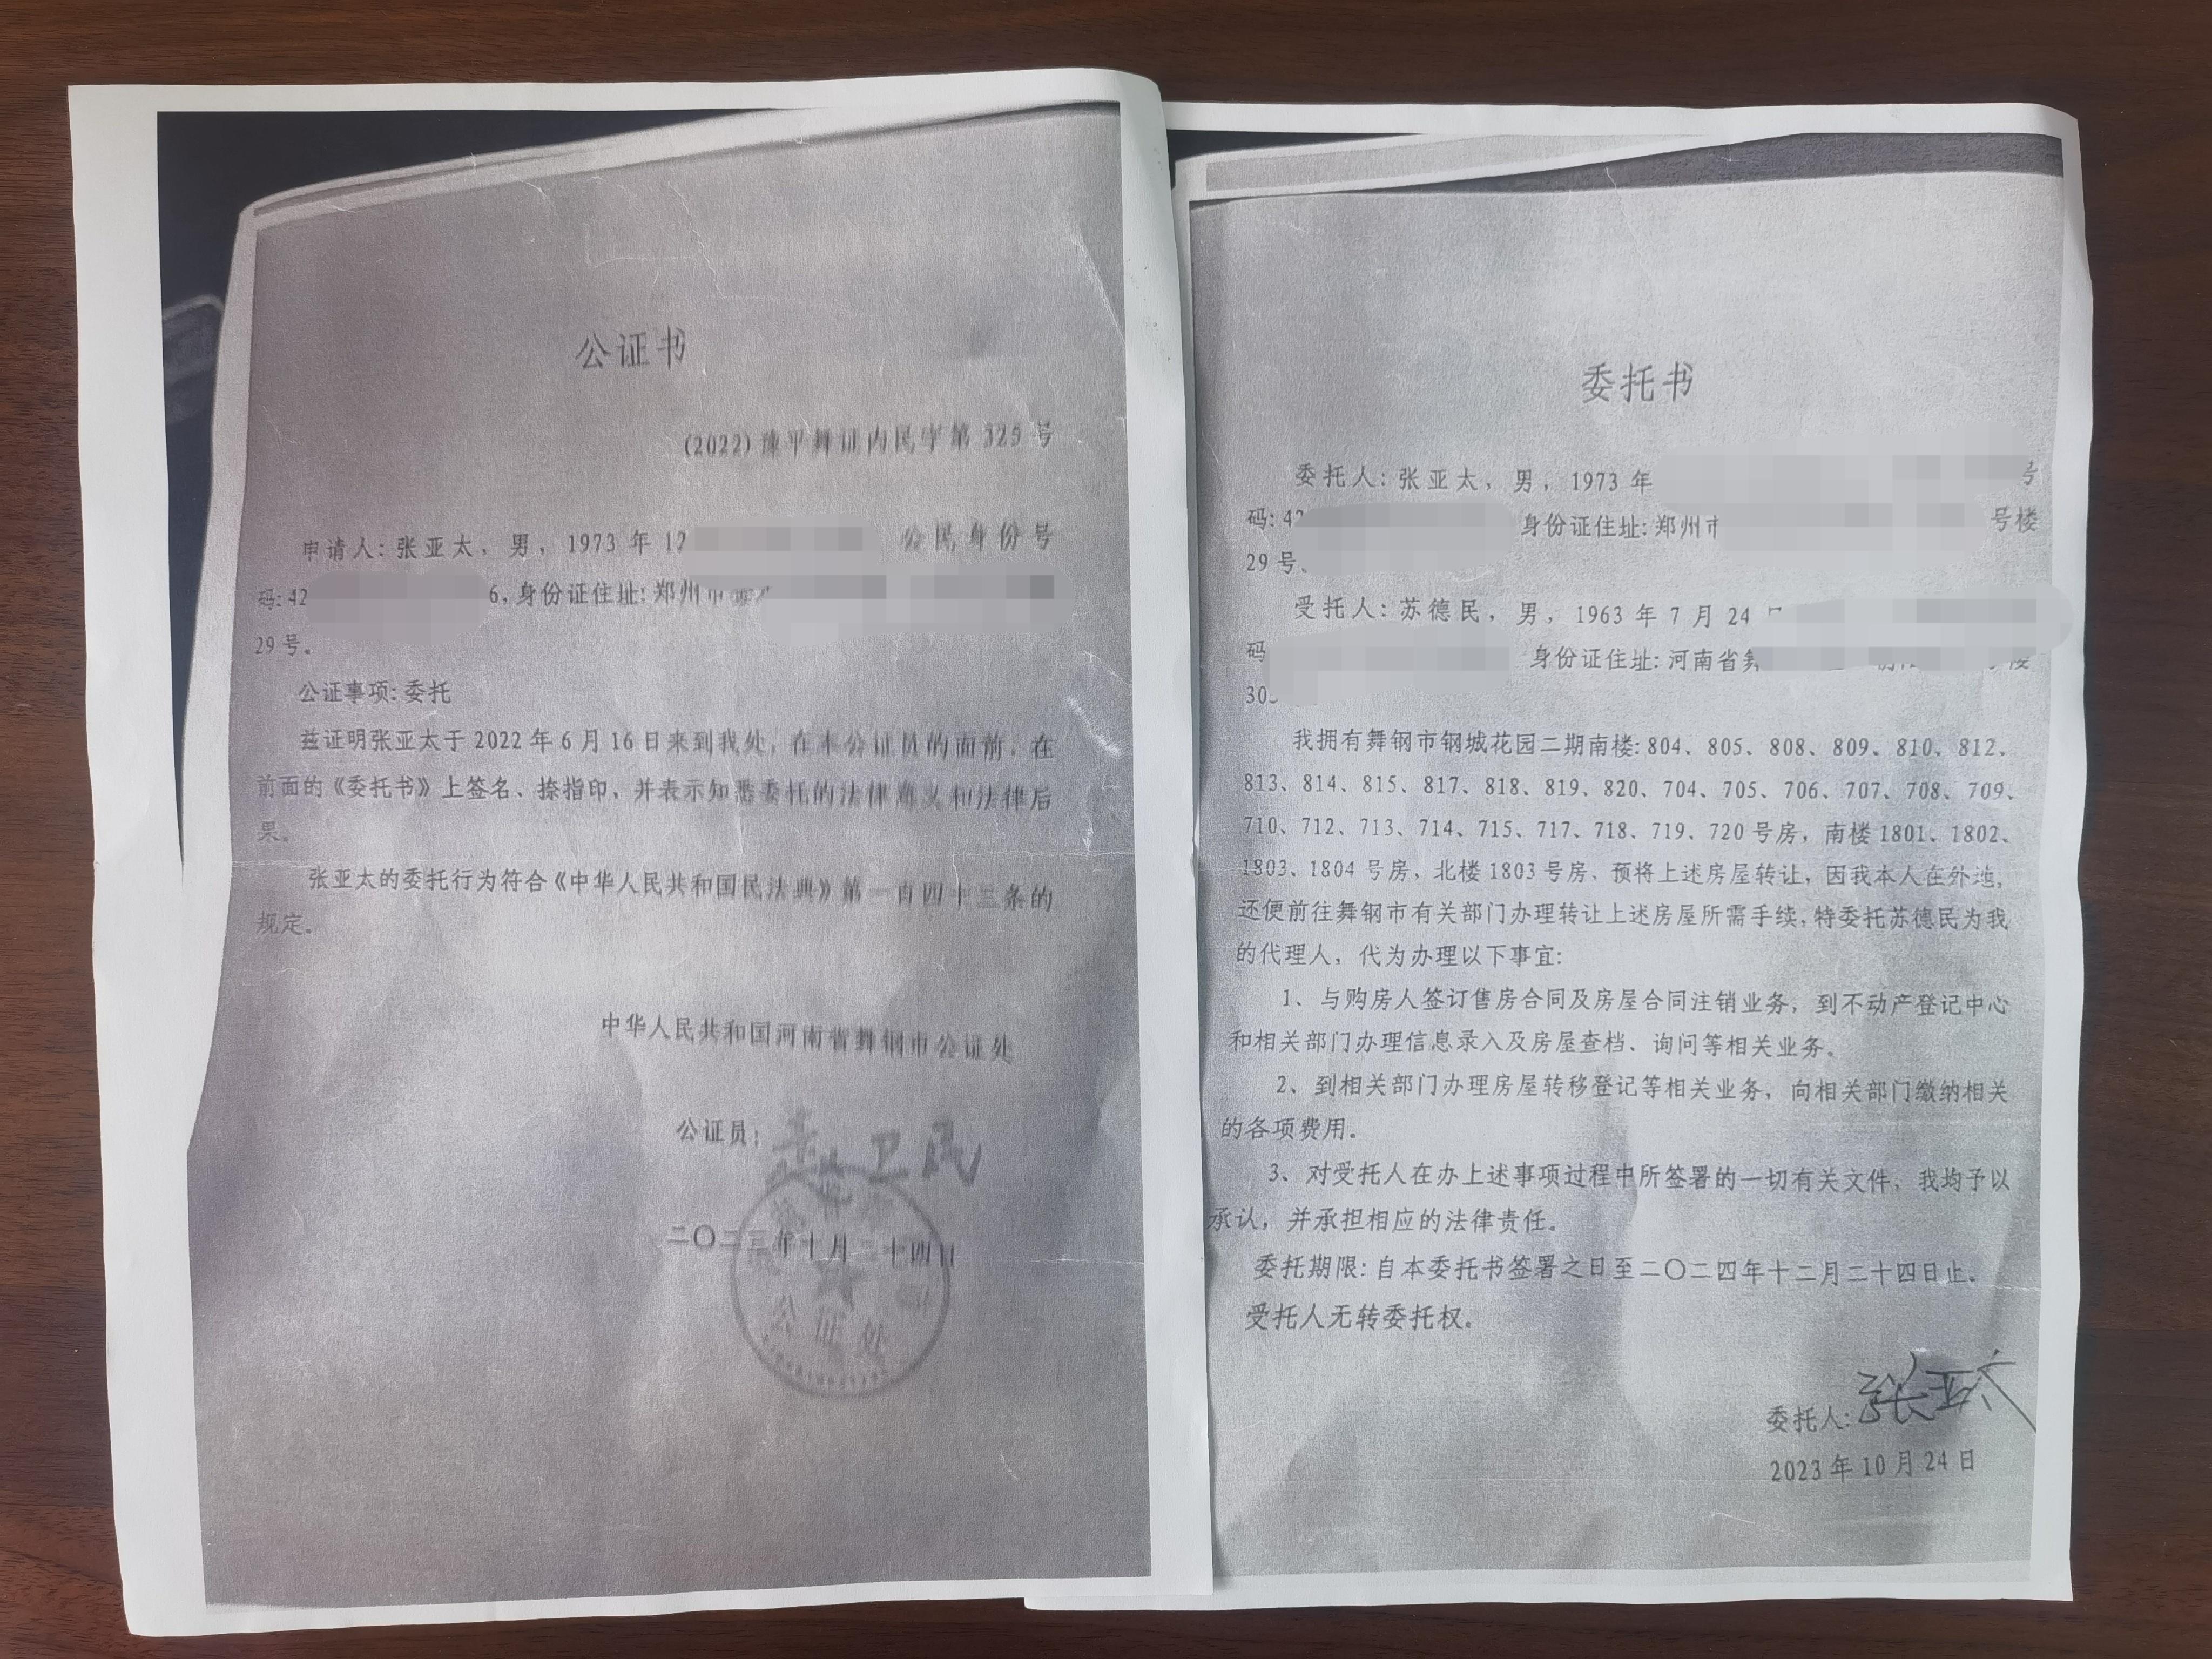 公证书
(2022)豫平舞证内民字第325号
申请人:张亚太，男，1973年12
公民身份号
码:42
6,身份证住址:郑州市
29号。
公证事项:委托
兹证明张亚太于2022年6月16日来到我处，在本公证员的面前，在
前面的《委托书》上签名、捺指印，并表示知悉委托的法律意义和法律后
果。
张亚太的委托行为符合《中华人民共和国民法典》第一百四十三条的
规定。
中华人民共和国河南省舞钢市公证处
公证员:
卫民
二〇二三年十月二十四日
公证处
委托书
委托人:张亚太，男，1973年
号
码:42
身份证住址:郑州市
号楼
29号。
受托人:苏德民，男，1963年7月24
码
身份证住址:河南省舞
楼
30
我拥有舞钢市钢城花园二期南楼:804、805、808、809、810、812、
813、814、815、817、818、819、820、704、705、706、707、708、709、
710、712、713、714、715、717、718、719、720号房，南楼1801、1802、
1803、1804号房，北楼1803号房、预将上述房屋转让，因我本人在外地，
还便前往舞钢市有关部门办理转让上述房屋所需手续,特委托苏德民为我
的代理人，代为办理以下事宜:
1、与购房人签订售房合同及房屋合同注销业务，到不动产登记中心
和相关部门办理信息录入及房屋查档、询问等相关业务。
2、到相关部门办理房屋转移登记等相关业务，向相关部门缴纳相关
的各项费用。
3、对受托人在办上述事项过程中所签署的一切有关文件，我均予以
承认，并承担相应的法律责任。
委托期限:自本委托书签署之日至二〇二四年十二月二十四日止。
受托人无转委托权。
委托人:张亚太
2023年10月24日